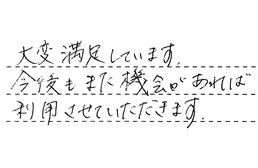 大変満足しています.
今後もまた機会があれば
利用させていただきます.